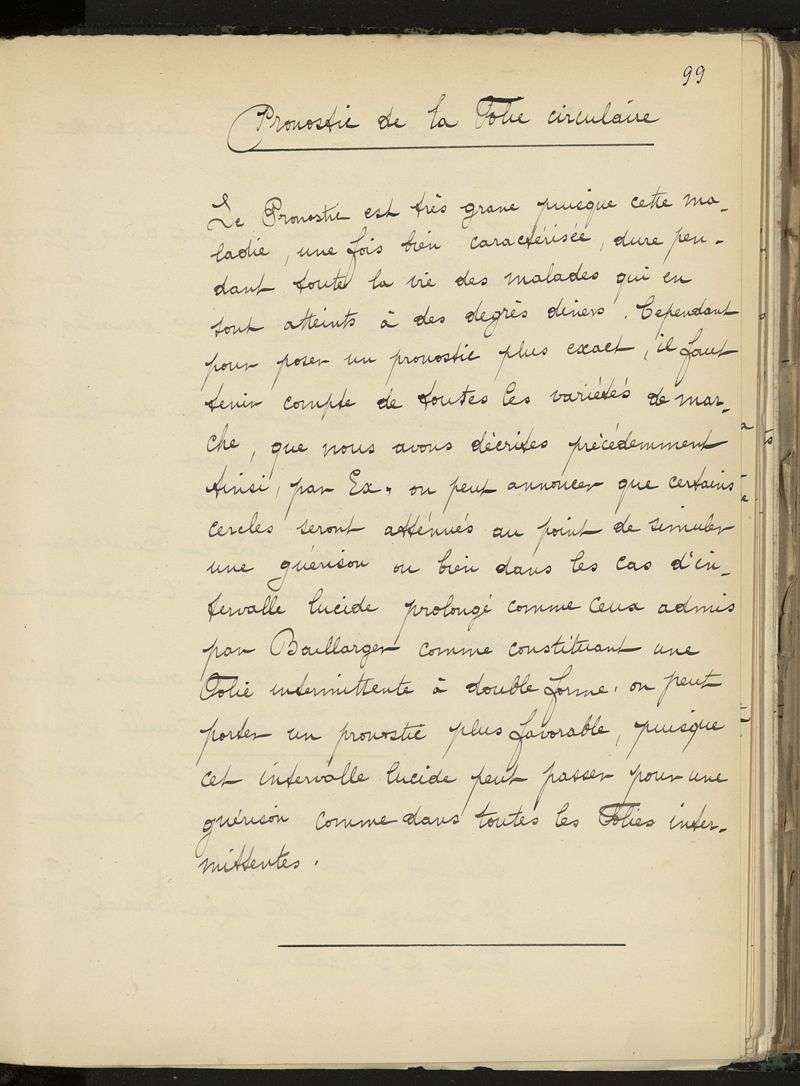 99
Pronostic de la Folie circulaire
Le Pronostic est très grave puisque cette ma-
ladie, une fois bien caractérisée, dure pen-
dant toute la vie des malades qui en
sont atteints à des degrès divers. Cependant
pour poser un pronostic plus exact, il faut
tenir compte de toutes les variétés de mar-
che, que nous avons décrites précédemment
Ainsi, par Ex, on peut annoncer que certains
cercles seront atténués au point de simuler
une guérison ou bien dans les cas d'in-
tervalle lucide prolongé comme ceux admis
par Baillarger comme constituant une
Folie intermittente à double forme, on peut
porter un pronostic plus favorable, puisque
cet intervalle lucide peut passer pour une
guérison comme dans toutes les Folies inter-
mittentes.